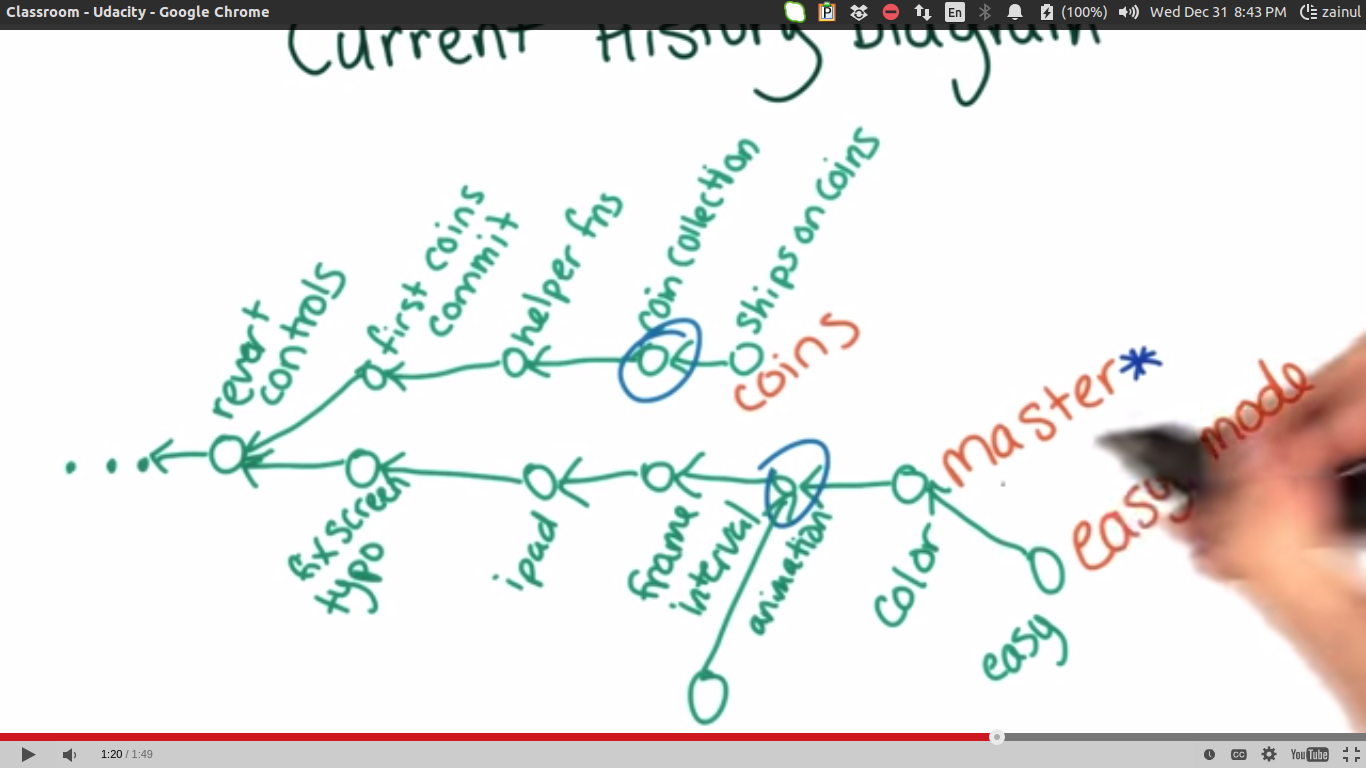 Classroom - Udacity - Google Chrome
En
(100%)
Wed Dec 31 8:43 PM
zainul
Current History Diagram
revert
controls
first coins
commit
helper fns
coin collection
ships on coins
coins
master*
easy mode
fix screen
typo
ipad
frame
interval
animation
color
easy
1:20 / 1:49
CC
YouTube